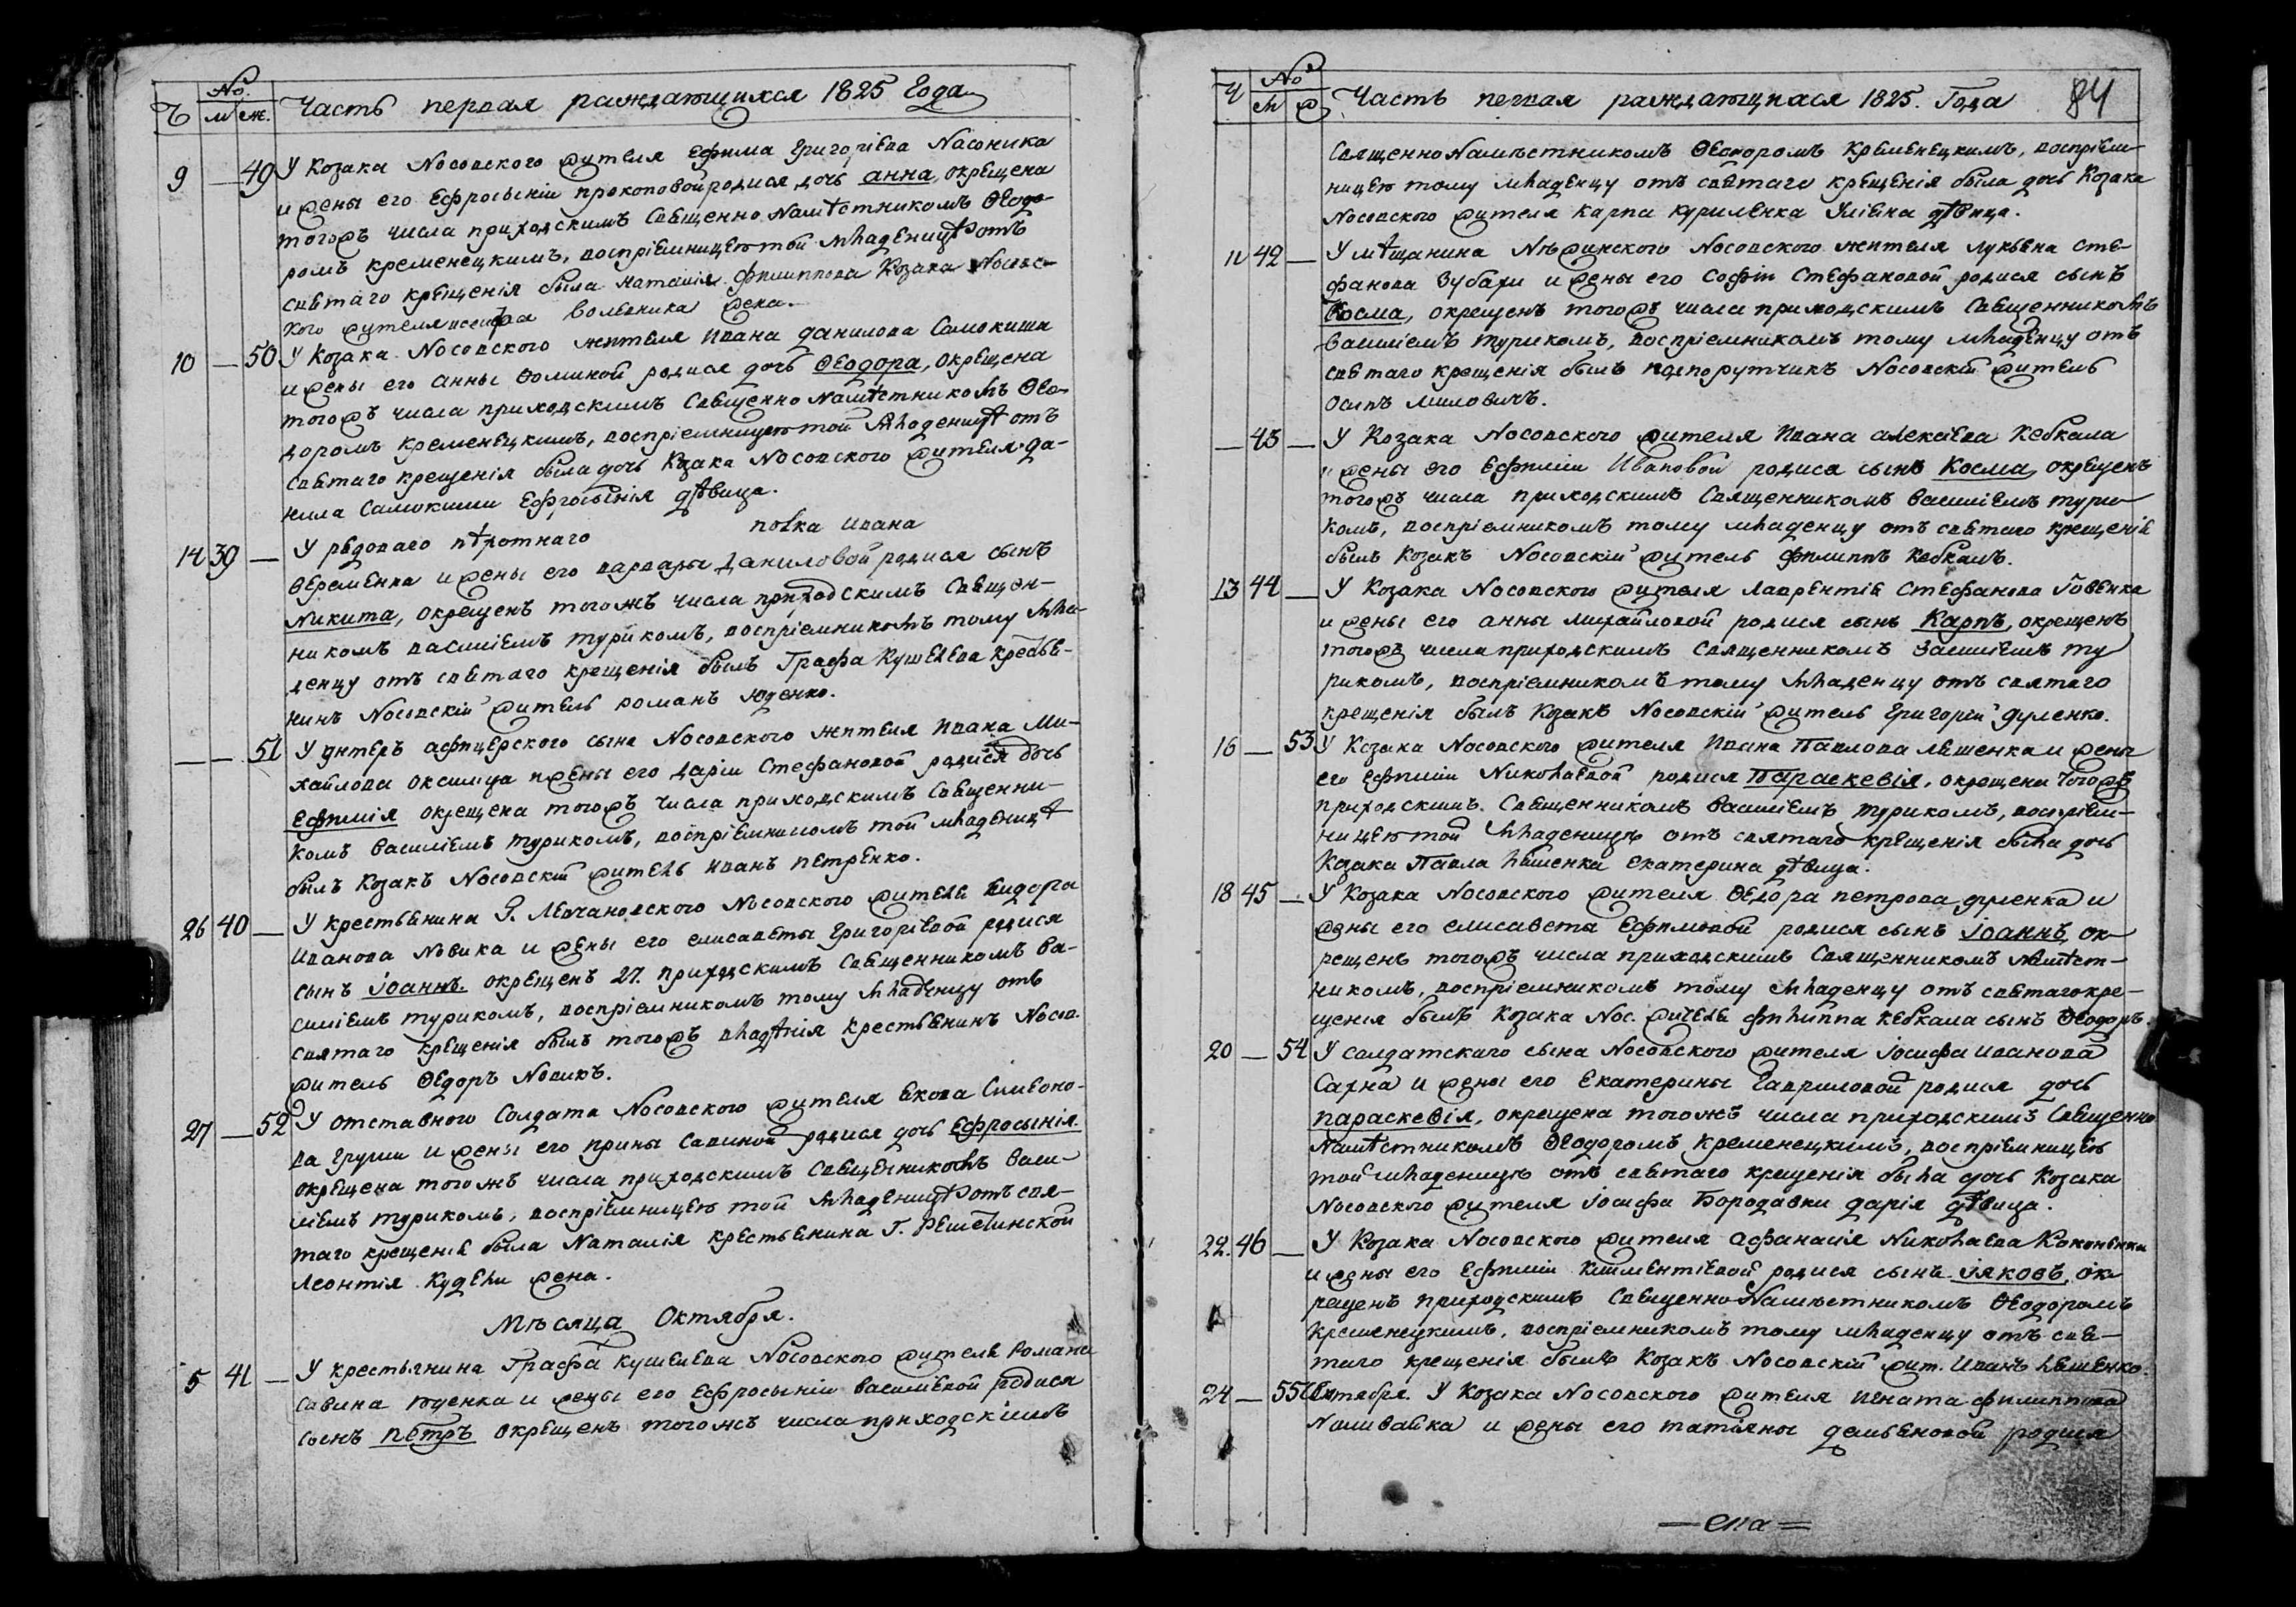 №.
Ч м ж. Часть первая раждающихся 1825 Года
9 — 49 У Козака Носовского жителя Ефима Григоріева Насоника
и жены его Ефросыніи Прокоповой родися дочь Анна, окрещена
тогожъ числа приходскимъ Священно Намѣстникомъ Ѳеодо-
ромъ Кременецкимъ, воспріемницею той младеницѣ отъ
святаго крещенія была Наталія Филиппова Козака Носовс-
кого жителя Іосифа жена.
10 — 50 У Козака Носовского жителя Ивана Данилова Самокиши
и жены его Анны Фоминой родися дочь Ѳеодора, окрещена
тогожъ числа приходскимъ Священно Намѣстникомъ Ѳео-
доромъ Кременецкимъ, воспріемницею той младеницѣ отъ
святаго крещенія была дочь Козака Носовского жителя Да-
нила Самокиши Ефросынія дѣвица.
14 39 — У рядоваго пѣхотнаго полка Ивана
Ѳеременка и жены его Варвары Даниловой родися сынъ
Никита, окрещенъ тогожъ числа приходскимъ Священ-
никомъ Василіемъ Турикомъ, воспріемникомъ тому мла-
денцу отъ святаго крещенія былъ Графа Кушелева крестья-
нинъ Носовскій житель Романъ Юденко.
— — 51 У унтеръ афицерского сына Носовского жителя Ивана Ми-
хайлова Оксимца и жены его Даріи Стефановой родися дочь
Ефимія окрещена тогожъ числа приходскимъ Священни-
комъ Василіемъ Турикомъ, воспріемникомъ той младеницѣ
былъ Козакъ Носовскій житель Иванъ Петренко.
26 40 — У крестьянина Г. Лвочановского Носовского жителя Сидора
Иванова Новика и жены его Елисаветы Григоріевой родися
сынъ Іоаннъ. окрещенъ 27. приходскимъ Священникомъ Ва-
силіемъ Турикомъ, воспріемникомъ тому младенцу отъ
святаго крещенія былъ тогожъ владѣнія крестьянинъ Носов.
житель Ѳедоръ Новикъ.
27 — 52 У отставного Солдата Носовского жителя Якова Симеоно-
ва Груши и жены его Ирины Савиной родися дочь Ефросынія
окрещена тогожъ числа приходскимъ Священникомъ Васи-
ліемъ Турикомъ, воспріемницею той младеницѣ отъ свя-
таго крещенія была Наталія крестьянина Г. Решетинской
Леонтія Кудели жена.
Мѣсяца Октября.
5 41 — У крестьянина Графа Кушелева Носовского жителя Романа
Савина Юденка и жены его Ефросыніи Василіевой родися
сынъ Петръ окрещенъ тогожъ числа приходскимъ
№
Ч м ж Часть первая раждающихся 1825. Года 84
Священно Намѣстникомъ Ѳеодоромъ Кременецкимъ, воспріем-
ницею тому младенцу отъ святаго крещенія была дочь Козака
Носовского жителя Карпа Куриленка Уліяна дѣвица.
11 42 — У мѣщанина Нѣжинского Носовского жителя Лукьяна Сте-
фанова Зубахи и жены его Софіи Стефановой родися сынъ
Косма, окрещенъ тогожъ числа приходскимъ Священникомъ
Василіемъ Турикомъ, воспріемникомъ тому младенцу отъ
святаго крещенія былъ подпорутчикъ Носовскій житель
Осипъ Миловичъ.
— 43 — У Козака Носовского жителя Ивана Алексіева Кебкала
и жены его Ефиміи Ивановой родися сынъ Косма, окрещенъ
тогожъ числа приходскимъ Священникомъ Василіемъ Тури-
комъ, воспріемникомъ тому младенцу отъ святаго крещенія
былъ Козакъ Носовскій житель Филиппъ Кебкалъ.
13 44 — У Козака Носовского жителя Лаврентія Стефанова Говенка
и жены его Анны Михайловой родися сынъ Карпъ, окрещенъ
тогожъ числа приходскимъ Священникомъ Василіемъ Ту
рикомъ, воспріемникомъ тому младенцу отъ святаго
крещенія былъ Козакъ Носовскій житель Григорій Дуленко.
16 — 53 У Козака Носовского жителя Ивана Павлова Лешенка и жены
его Ефиміи Николаевой родися Параскевія, окрещена тогожъ
приходскимъ. Священникомъ Василіемъ Турикомъ, воспріем-
ницею той младеницѣ отъ святаго крещенія была дочь
Козака Павла Лешенка Екатерина дѣвица.
18 45 — У Козака Носовского жителя Ѳедора Петрова Дуленка и
жены его Елисаветы Ефимовой родися сынъ Іоаннъ, ок-
рещенъ тогожъ числа приходскимъ Священникомъ Намѣст-
никомъ, воспріемникомъ тому младенцу отъ святаго кре-
щенія былъ Козака Нос. жителя Филиппа Кебкала сынъ Ѳеодоръ.
20 — 54 У солдатскаго сына Носовского жителя Іосифа Иванова
Сахна и жены его Екатерины Гавриловой родися дочь
Параскевія, окрещена тогожъ числа приходскимъ Священно
Намѣстникомъ Ѳеодоромъ Кременецкимъ, воспріемницею
той младеницѣ отъ святаго крещенія была дочь Козака
Носовского жителя Іосифа Бородавки Дарія дѣвица.
22. 46 — У Козака Носовского жителя Афанасія Николаева Коконенка
и жены его Ефиміи Климентіевой родися сынъ Іяковъ, ок-
рещенъ приходскимъ Священно Намѣстникомъ Ѳеодоромъ
Кременецкимъ, воспріемникомъ тому младенцу отъ свя-
таго крещенія былъ Козакъ Носовскій жит. Иванъ Лешенко.
24 — 55 Октября. У Козака Носовского жителя Игната Филиппова
Наливайка и жены его Татіяны Демьяновой родися